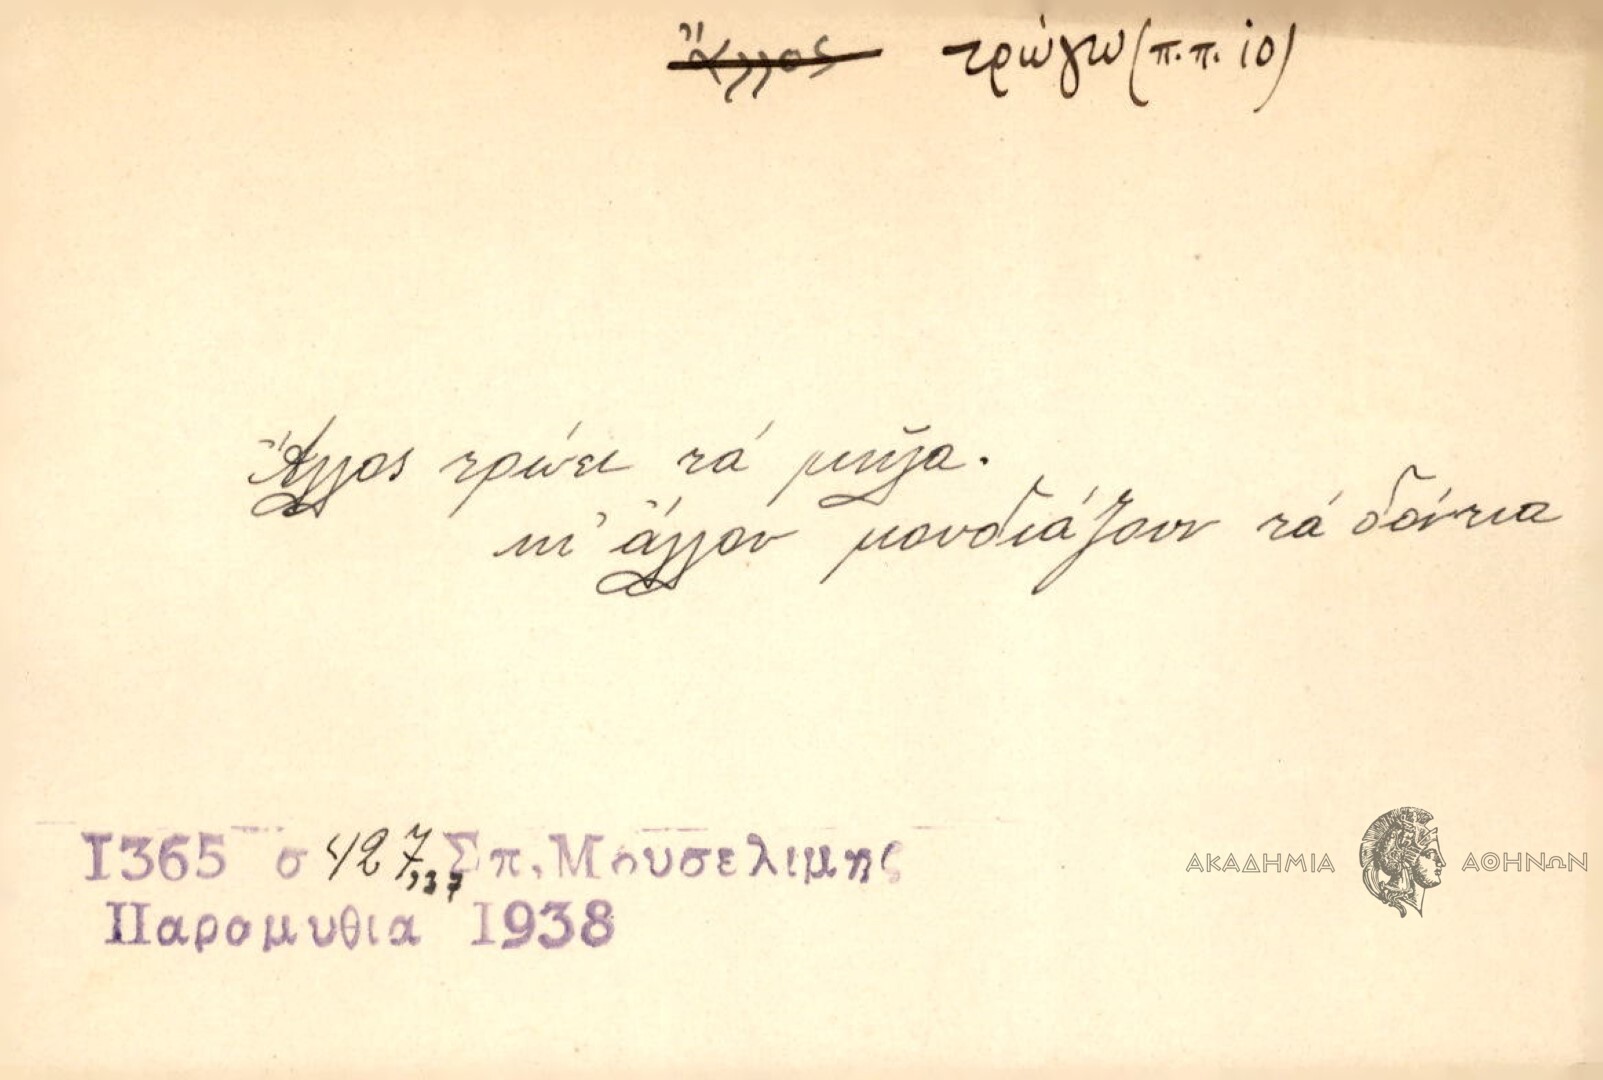 Ἄλλος τρώγω (π.π. ΙΟ)
Ἄλλος τρώει τά μῆλα.
κι' ἄλλου μουδιάζουν τά δόντια
Ι365 σ 427,37 Σπ. Μουσελιμης
Παραμυθια Ι938
ΑΚΑΔΗΜΙΑ ΑΘΗΝΩΝ